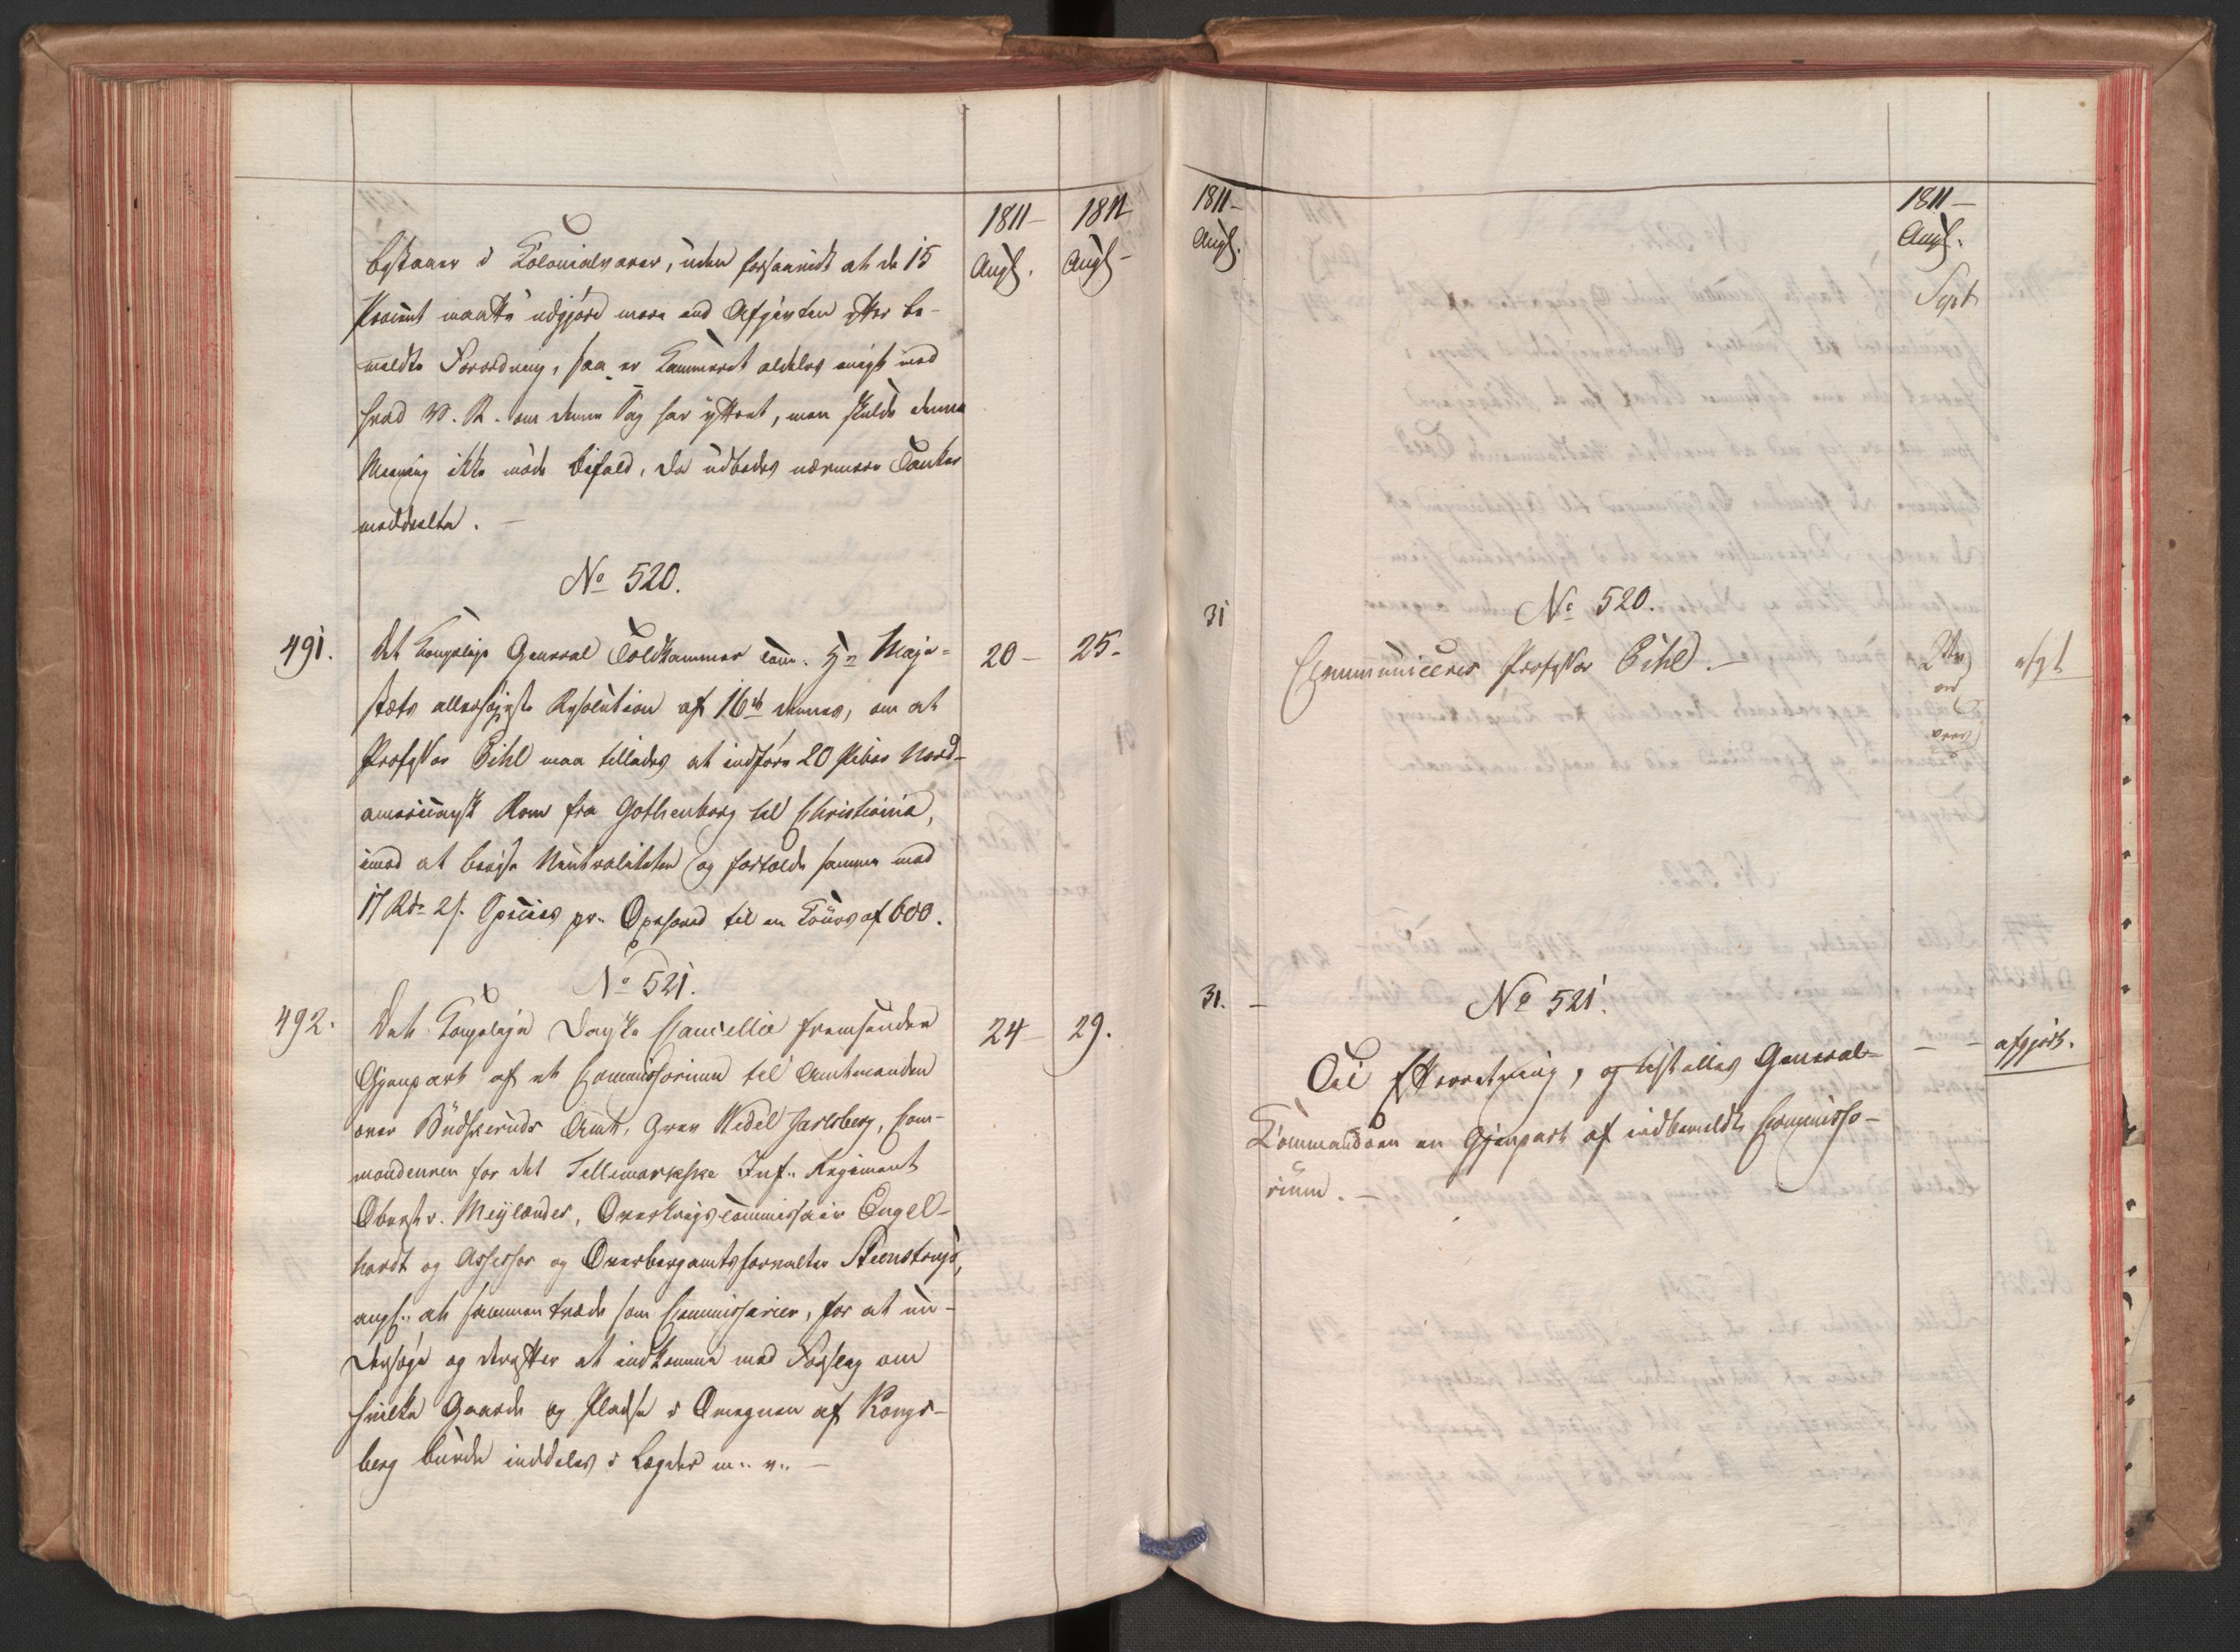 1811– 1811
Augs. Augs–
bestaaer i Kolonialvarer, uden forsaavidt at de 15
Procent maatte udgjøre mere end Afgivten efter be-
meldte Forordning, saa er Kammeret aldeles enigt med
hvad V. R. om denne Sag har yttret, men skulde denne
Meening ikke møde Bifald, da udbedes nærmere Tanker
meddeelte. –
No 520.
491. Det Kongelige General Toldkammer com. Hs Maje- 20– 25.
stæts allerhøjeste Resolution af 16de dennes, om at
Professor Pihl maa tillades at indføre 20 Piber Nord-
americansk Rom fra Gothenborg til Christiania,
imod at bevise Neutraliteten og fortolde samme med
17 Rdr 2 s. Species pr. Oxehoved til en Cours af 600.
No 521.
492. Det Kongelige Danske Cancellie fremsender 24– 29.
Gjenpart af et Commissorium til Amtmanden
over Budskeruds Amt, Grev Wedel Jarlsberg, Com-
mandeuren for det Tellemarkske Inf. Regiment
Oberst v. Meylænder, Overkrigscommissair Engel-
hardt og Assessor og Overbergamtsforvalter Steenstrup,
ang. at sammentræde som Commissarier, for at un-
dersøge og derefter at indkomme med Forslag om
hvilke Gaarde og Pladse i Omegnen af Kongs-
berg burde inddeles i Lægder m. v. –
1811– 1811–
Augs. Augs.
Sept
31 No 520.
Communiceres Professor Pihl. – afgt
31. – No 521.
Til Efterretning, og tilstilles General- – – afgjort.
Kommandoen en Gjenpart af indbemeldte Commisso-
rium. –